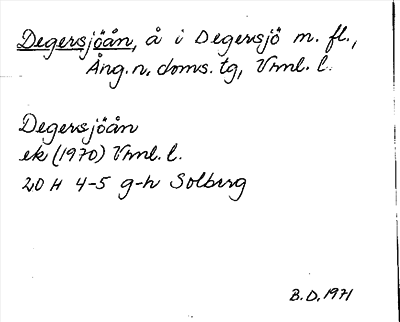 Degersjöån, å i Degersjö m. fl.,
Ång. n. doms. tg, Vrml. l.
Degersjöån
ek (1970) Vrml. l.
20 H 4-5 g-h Solberg
B.D. 1971